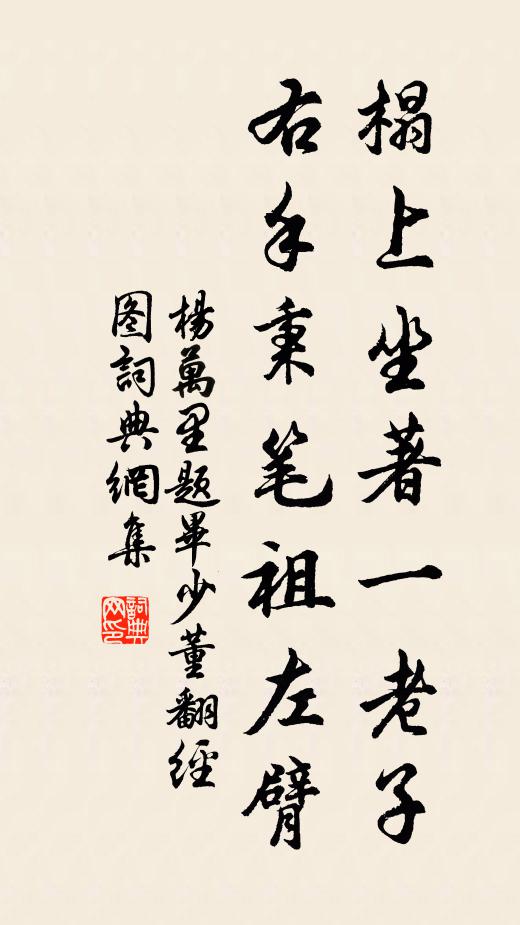 榻上坐著一老子
右手秉笔祖左臂
楊萬里题畢少董翻經
图詞典網集
詞典网印